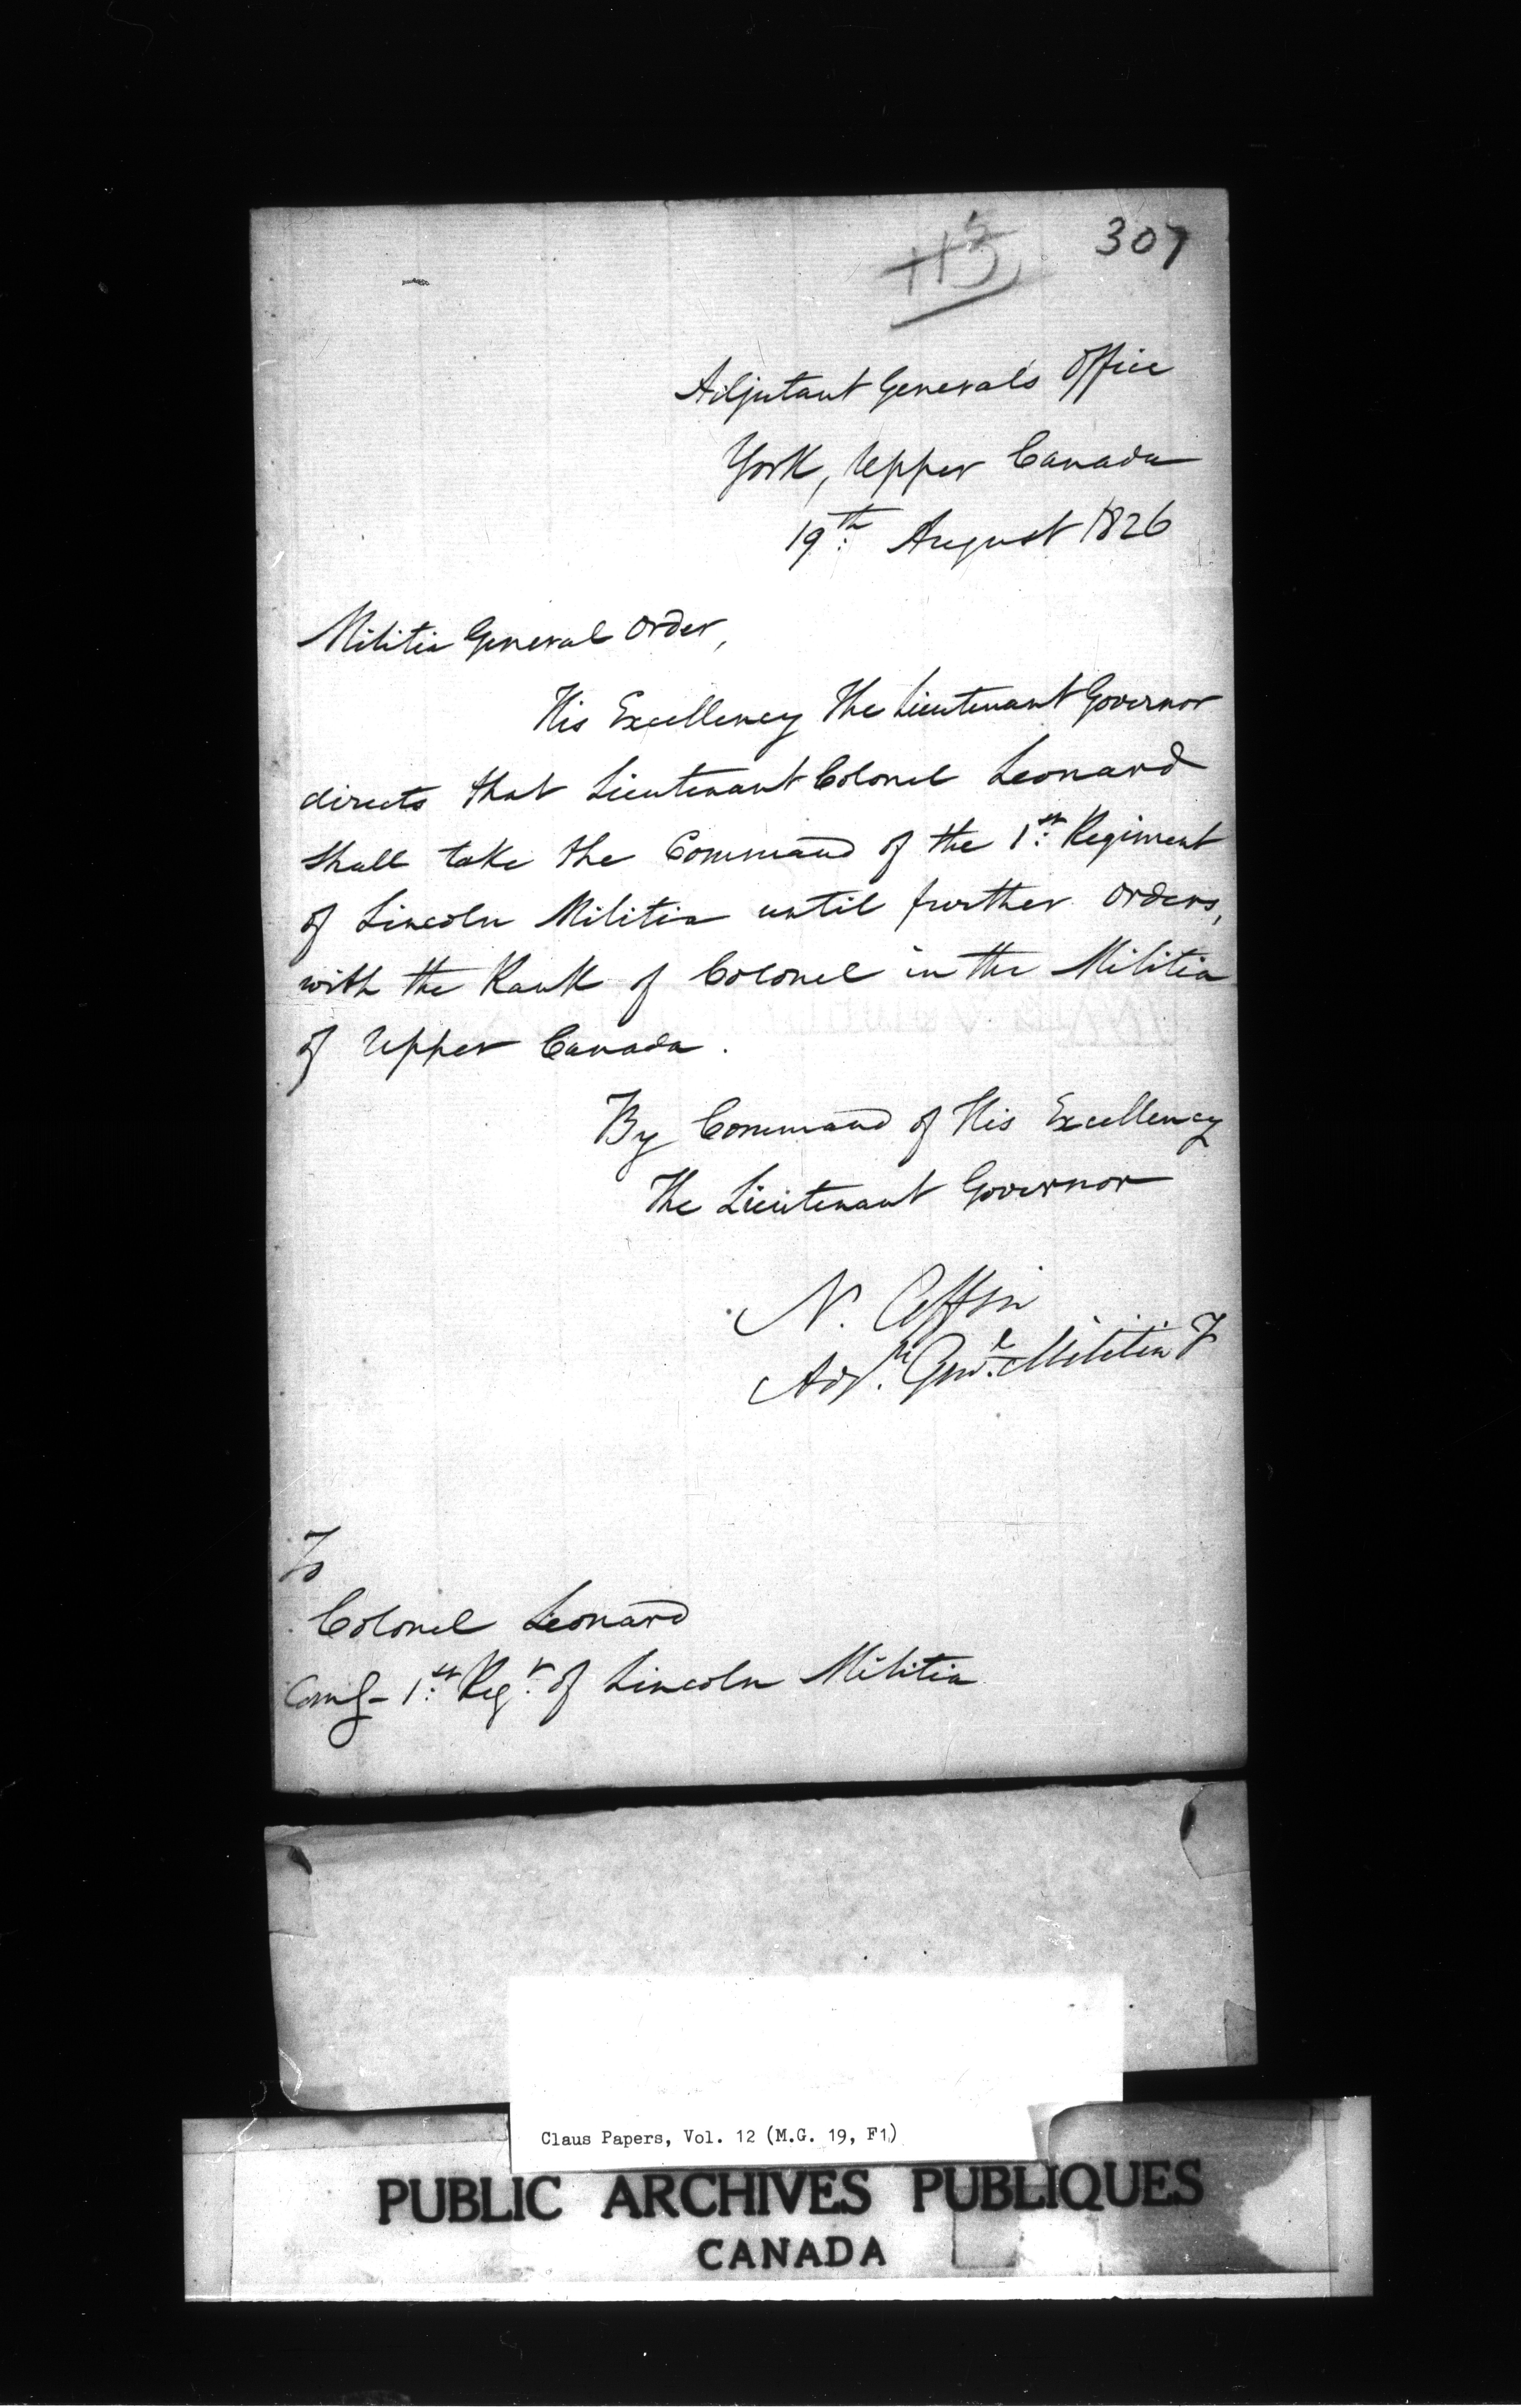 307
115
Adjutant Generals Office
York, Upper Canada
19th August 1826
Militia General Order,
His Excellency The Lieutenant Governor
directs that Lieutenant Colonel Leonard
shall take the Command of the 1st Regiment
of Lincoln Militia until further orders,
with the Rank of Colonel in the Militia
of Upper Canada.
By Command of His Excellency
The Lieutenant Governor
N. Coffin
Adjt. Genl. Militia
To
Colonel Leonard
Comg- 1st Regt of Lincoln Militia
Claus Papers, Vol. 12 (M.G. 19, F1)
PUBLIC ARCHIVES PUBLIQUES
CANADA